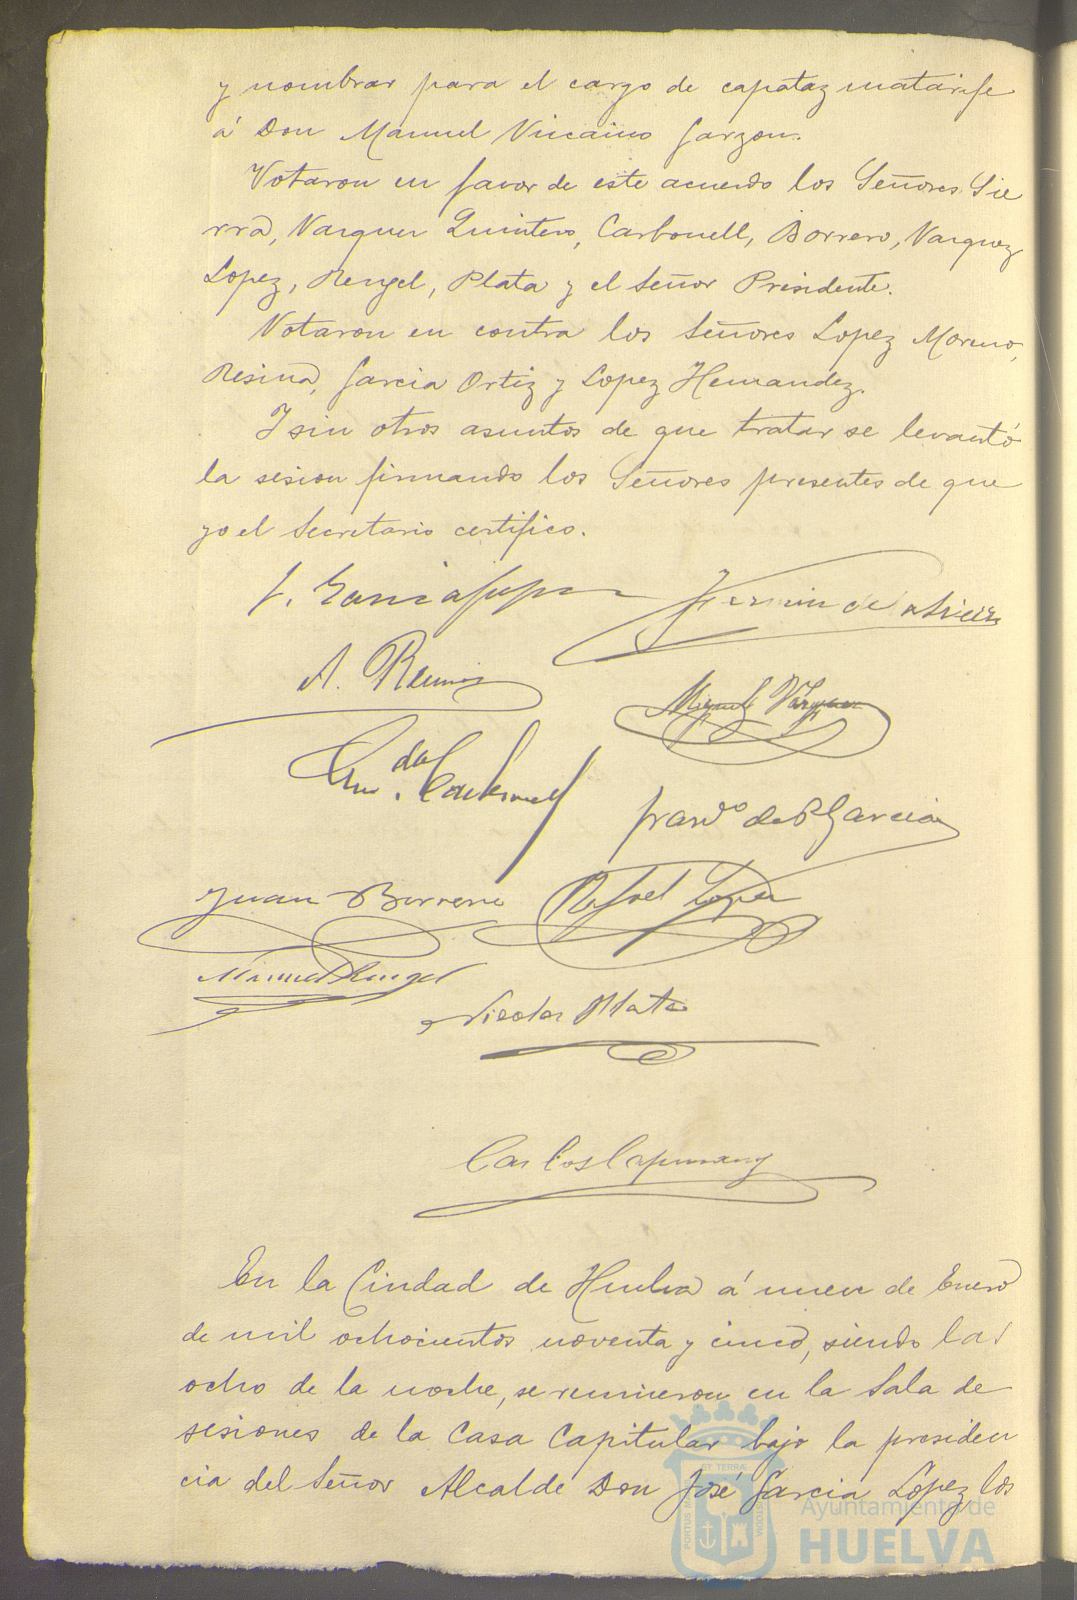 y nombrar para el cargo de capataz matarife
á Don Manuel Viscaino Garzon.
Votaron en favor de este acuerdo los Señores Sie
rra, Vazquez Quintero, Carbonell, Borrero, Vazquez
Lopez, Rengel, Plata y el Señor Presidente.
Votaron en contra los Señores Lopez Moreno,
Resina, Garcia Ortiz y Lopez Hernandez.
Y sin otros asuntos de que tratar se levantó
la sesion firmando los Señores presentes de que
yo el Secretario certifico.
J. Garcia Lopez
Fermin de la Sierra
A.
Miguel Vázquez
Carbonell
Franco de P Garcia
Juan Borrero
Rafael Lopez
Manuel Rengel
Nicolas Plata
Carlos Capmany
En la Ciudad de Huelva á nueve de Enero
de mil ochocientos noventa y cinco, siendo las
ocho de la noche, se reunieron en la Sala de
sesiones de la Casa Capitular bajo la presiden
cia del Señor Alcalde Don José Garcia López los
PORTUS MARIS ET TERRÆ CUSTODIA
Ayuntamiento de
HUELVA